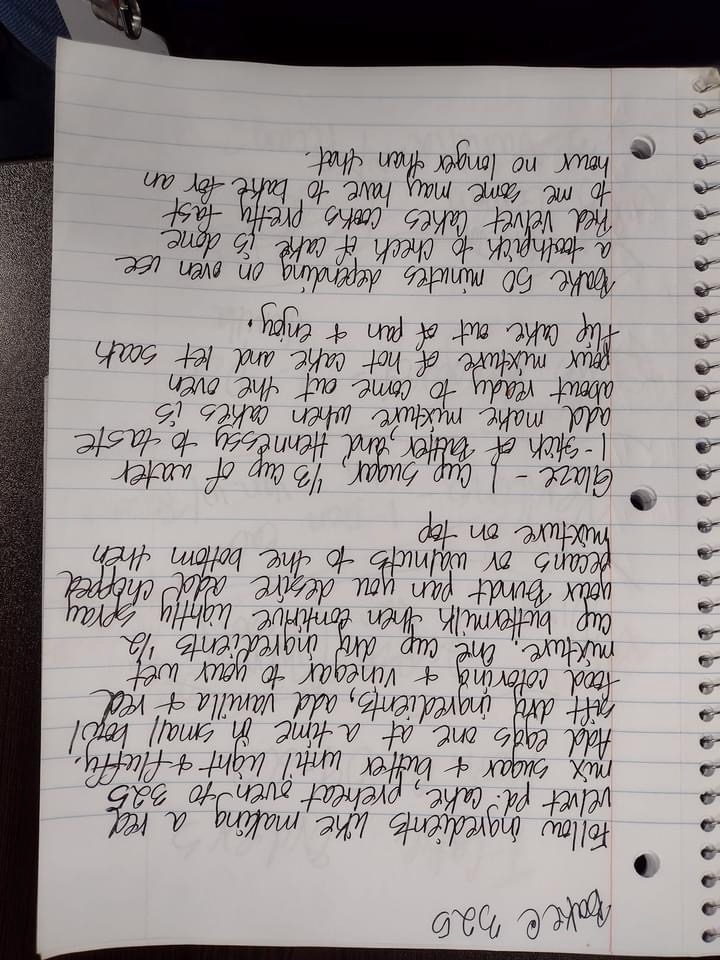 Bake @ 325
Follow ingredients like making a red
velvet pd. cake, preheat oven to 325
mix sugar + butter until light + fluffy.
Add eggs one at a time in small bowl
sift dry ingredients, add vanilla + red
food coloring + vinegar to your wet
mixture. One cup dry ingredients 1/2
cup buttermilk then continue lightly spray
your Bundt pan you desire add chopped
pecans or walnuts to the bottom then
mixture on top
Glaze - 1 cup sugar, 1/3 cup of water
1-stick of Butter, and Hennessy to taste
add make mixture when cakes is
about ready to come out the oven
pour mixture of hot cake and let soak
flip cake out of pan + enjoy.
Bake 50 minutes depending on oven use
a toothpick to check if cake is done
Red velvet cakes cooks pretty fast
to me some may have to bake for an
hour no longer than that.